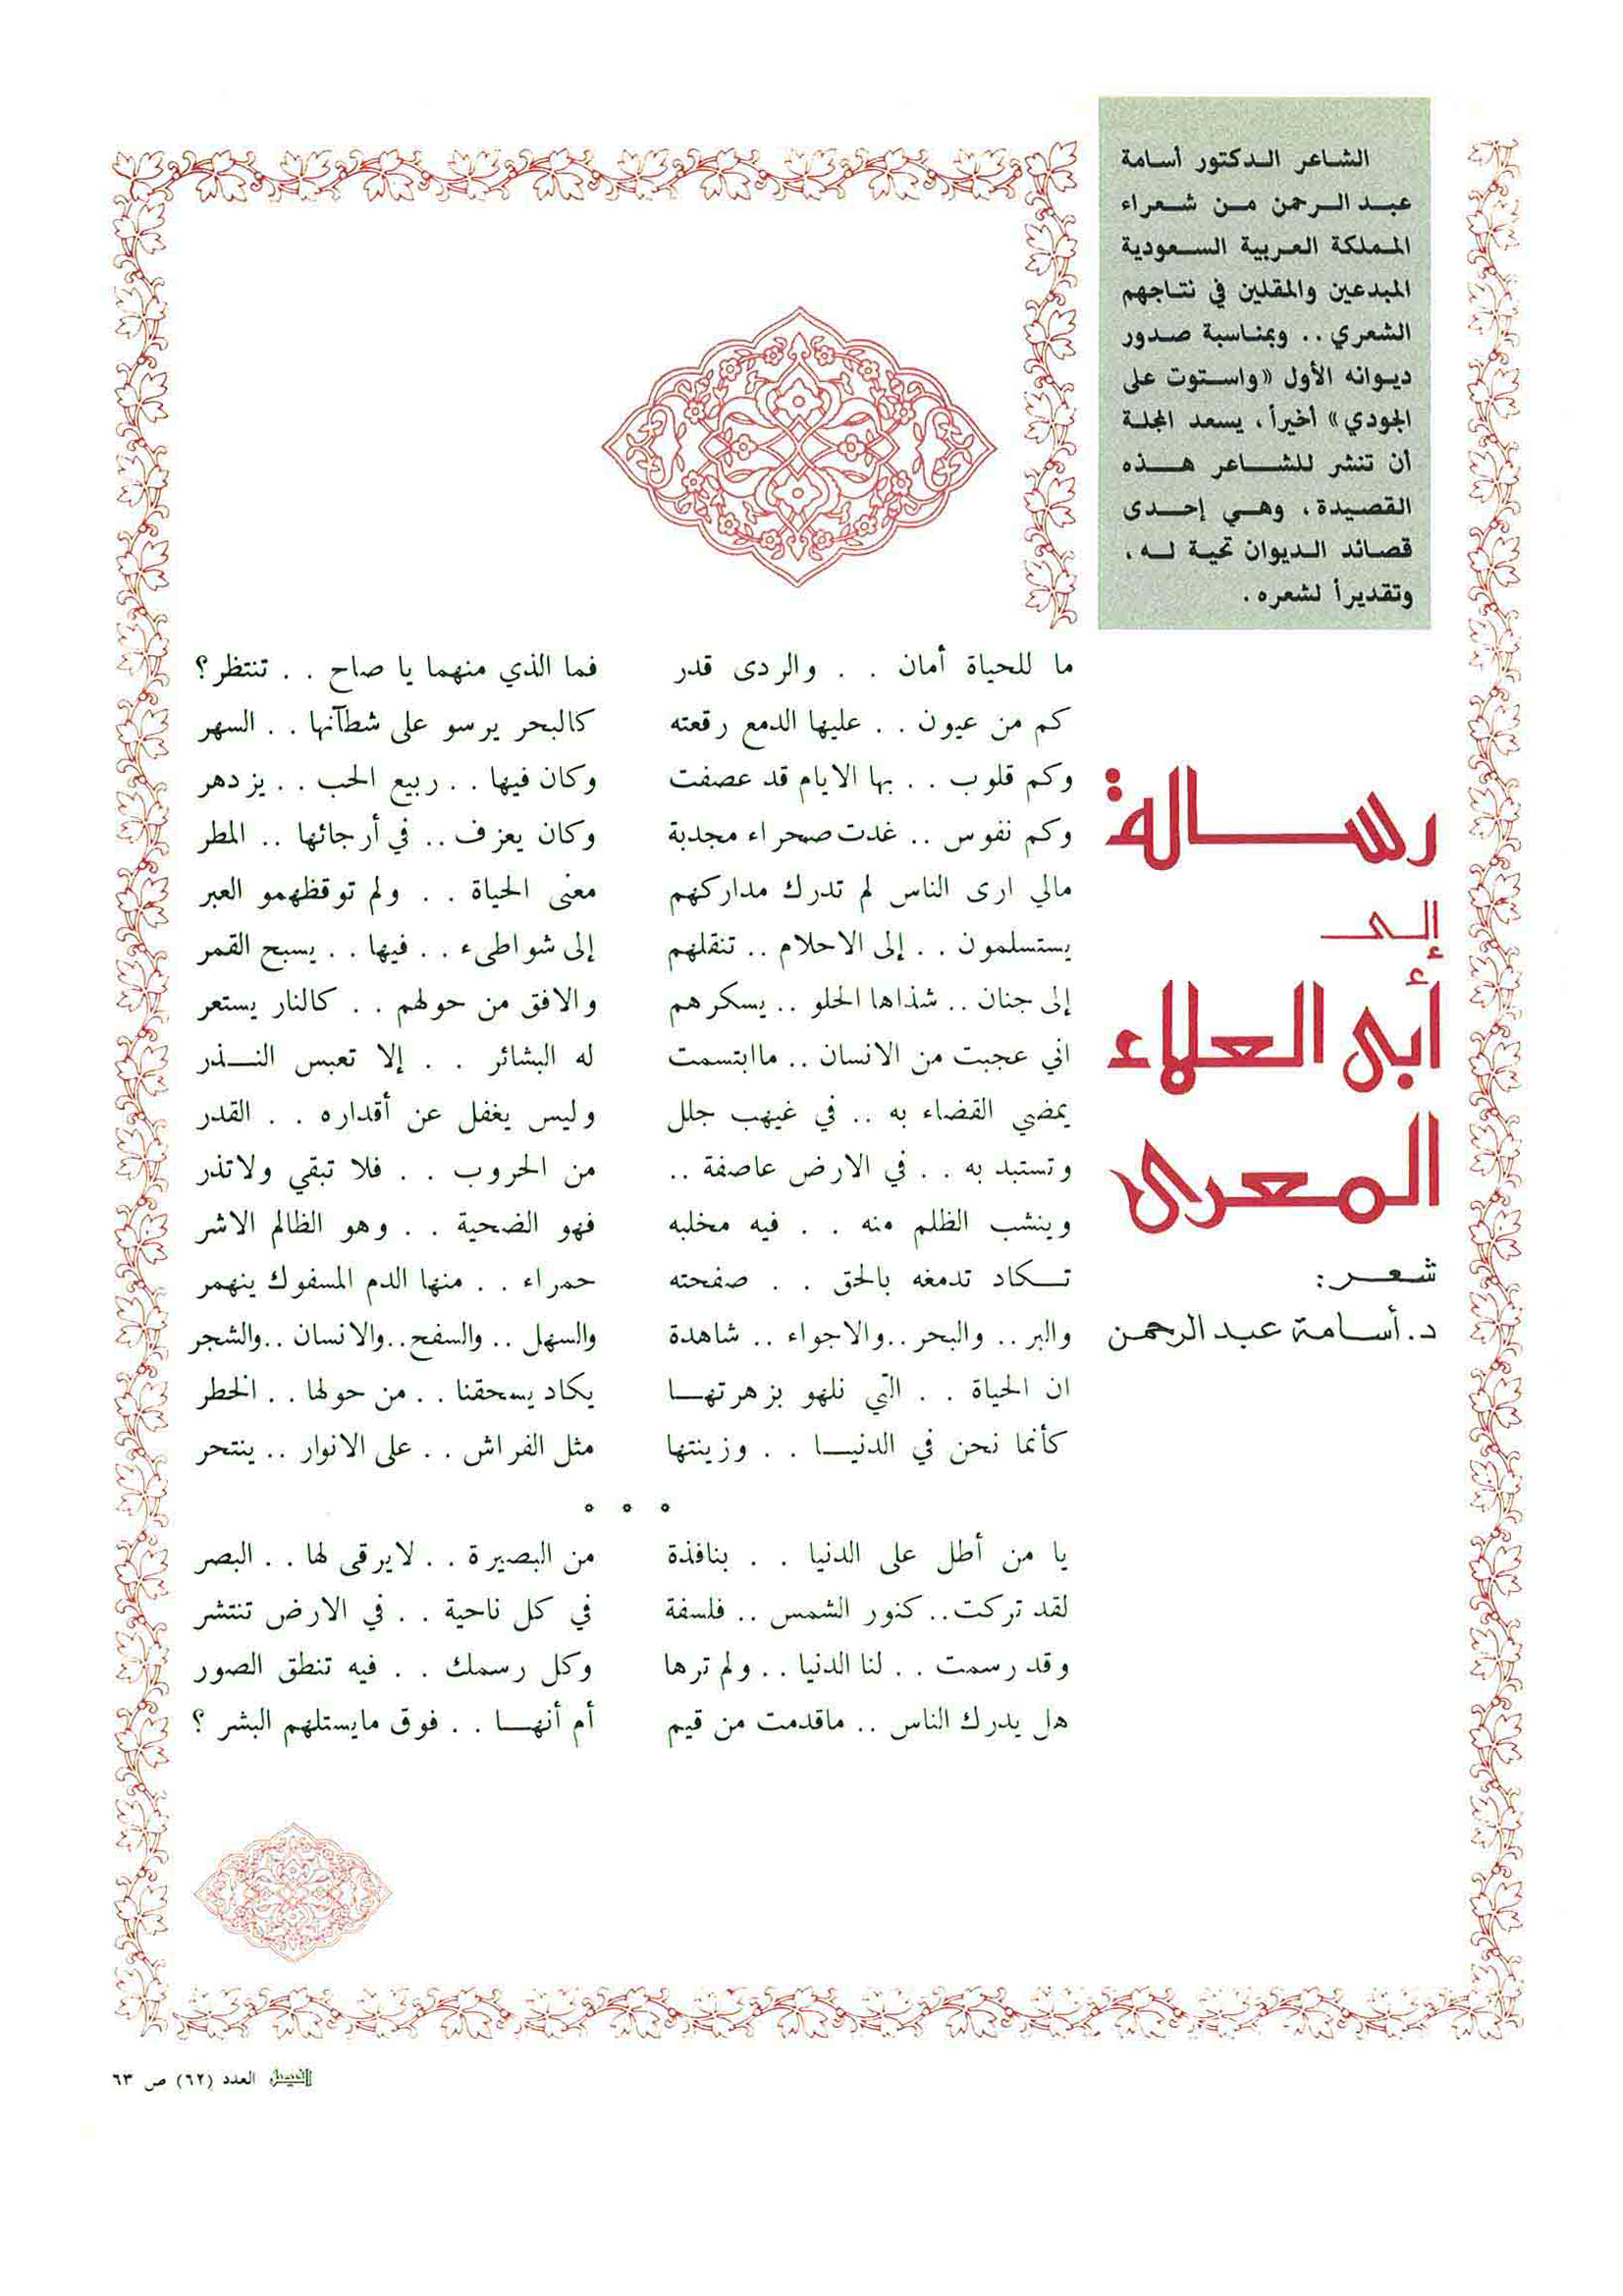 الشاعر الدكتور أسامة
عبد الرحمن من شعراء
المملكة العربية السعودية
المبدعين والمقلين في نتاجهم
الشعري .. وبمناسبة صدور
ديوانه الأول «واستوت على
الجودي» أخيراً، يسعد المجلة
أن تنشر للشاعر هذه
القصيدة، وهي إحدى
قصائد الديوان تحية له،
وتقديراً لشعره.
رسالة
إلى
أبي العلاء
المعري
شعر:
د. أسامة عبد الرحمن
ما للحياة أمان . . والردى قدر فما الذي منهما يا صاح . . تنتظر؟
كم من عيون . . عليها الدمع رقعته كالبحر يرسو على شطآنها . . السهر
وكم قلوب . . بها الايام قد عصفت وكان فيها . . ربيع الحب . . يزدهر
وكم نفوس .. غدت صحراء مجدبة وكان يعزف .. في أرجائها .. المطر
مالي ارى الناس لم تدرك مداركهم معنى الحياة . . ولم توقظهمو العبر
يستسلمون . . إلى الاحلام .. تنقلهم إلى شواطىء . . فيها . . يسبح القمر
إلى جنان .. شذاها الحلو .. يسكرهم والافق من حولهم . . كالنار يستعر
اني عجبت من الانسان .. ماابتسمت له البشائر . . إلا تعبس النذر
يمضي القضاء به .. في غيهب جلل وليس يغفل عن أقداره . . القدر
وتستبد به . . في الارض عاصفة .. من الحروب . . فلا تبقي ولاتذر
وينشب الظلم منه . . فيه مخلبه فهو الضحية . . وهو الظالم الاشر
تكاد تدمغه بالحق . . صفحته حمراء . . منها الدم المسفوك ينهمر
والبر .. والبحر ..والاجواء .. شاهدة والسهل .. والسفح..والانسان ..والشجر
ان الحياة . . التي نلهو بزهرتها يكاد يسحقنا . . من حولها . . الخطر
كأنما نحن في الدنيا . . وزينتها مثل الفراش . . على الانوار .. ينتحر
° ° °
يا من أطل على الدنيا . . بنافذة من البصيرة . . لايرقى لها . . البصر
لقد تركت.. كنور الشمس .. فلسفة في كل ناحية . . في الارض تنتشر
وقد رسمت . . لنا الدنيا . . ولم ترها وكل رسمك . . فيه تنطق الصور
هل يدرك الناس .. ماقدمت من قيم أم أنها . . فوق مايستلهم البشر ؟
الفيصل العدد (٦٢) ص ٦٣